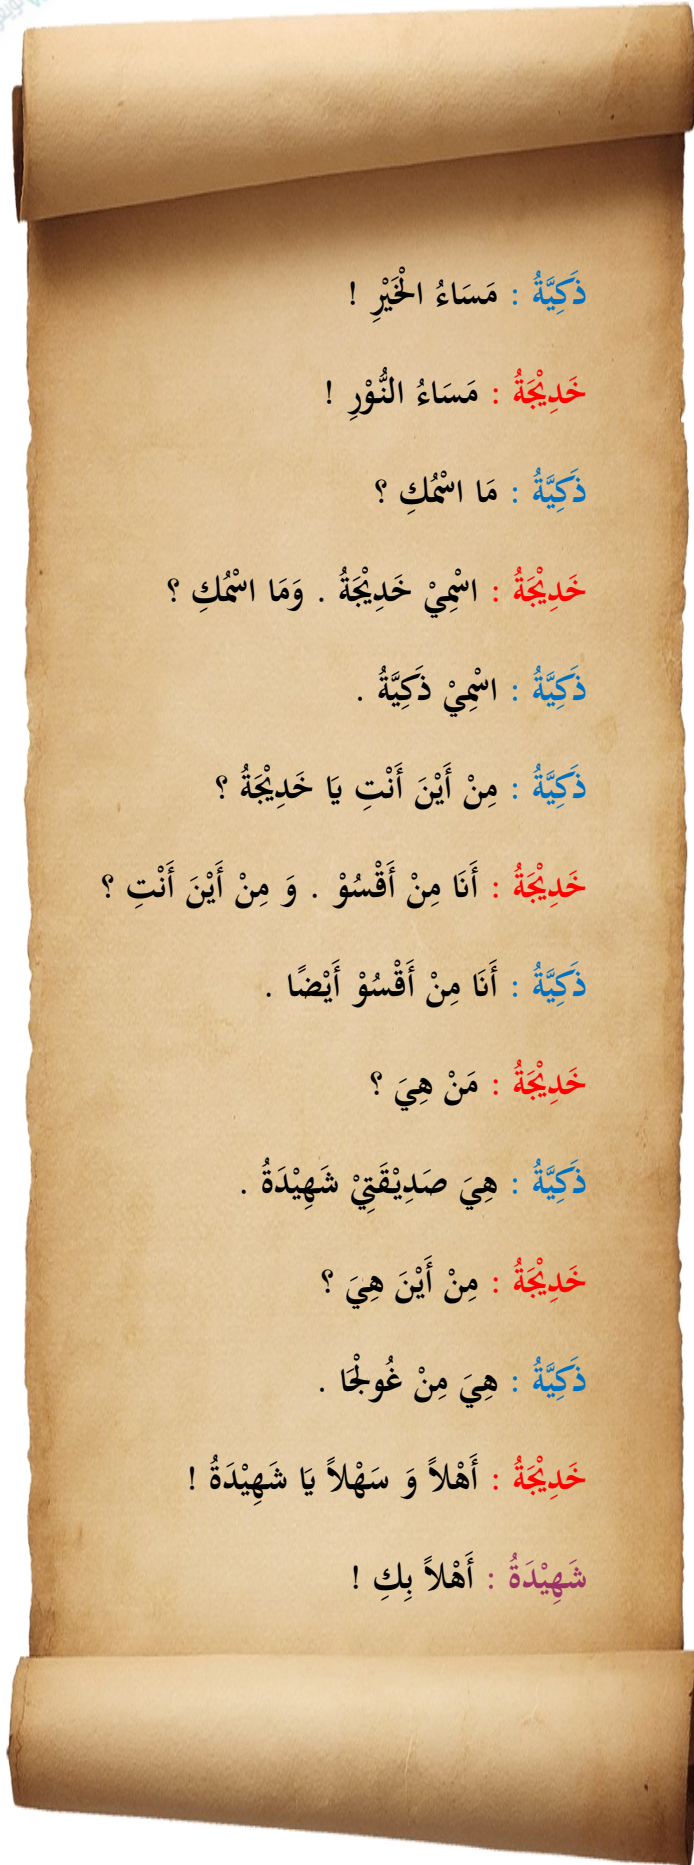 ذَكِيَّةُ : مَسَاءُ الْخَيْرِ !
خَدِيْجَةُ : مَسَاءُ النُّوْرِ !
ذَكِيَّةُ : مَا اسْمُكِ ؟
خَدِيْجَةُ : اسْمِيْ خَدِيْجَةُ . وَمَا اسْمُكِ ؟
ذَكِيَّةُ : اسْمِيْ ذَكِيَّةُ .
ذَكِيَّةُ : مِنْ أَيْنَ أَنْتِ يَا خَدِيْجَةُ ؟
خَدِيْجَةُ : أَنَا مِنْ أَقْسُوْ . وَ مِنْ أَيْنَ أَنْتِ ؟
ذَكِيَّةُ : أَنَا مِنْ أَقْسُوْ أَيْضًا .
خَدِيْجَةُ : مَنْ هِيَ ؟
ذَكِيَّةُ : هِيَ صَدِيْقَتِيْ شَهِيْدَةُ .
خَدِيْجَةُ : مِنْ أَيْنَ هِيَ ؟
ذَكِيَّةُ : هِيَ مِنْ غُولْجَا .
خَدِيْجَةُ : أَهْلاً وَ سَهْلاً يَا شَهِيْدَةُ !
شَهِيْدَةُ : أَهْلاً بِكِ !